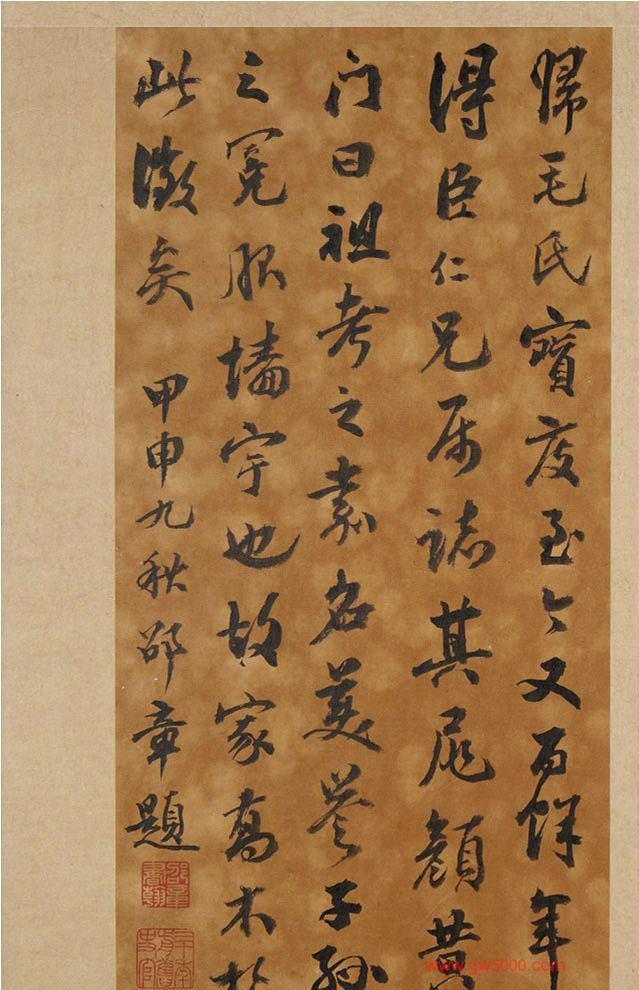 歸毛氏寶庋至今又百餘年
得臣仁兄属誌其尾顏黃
门曰祖考之嘉名美譽子孫
之冕服墻宇也故家喬木於
此徵矣
甲申九秋邵章題
www.gw5000.com